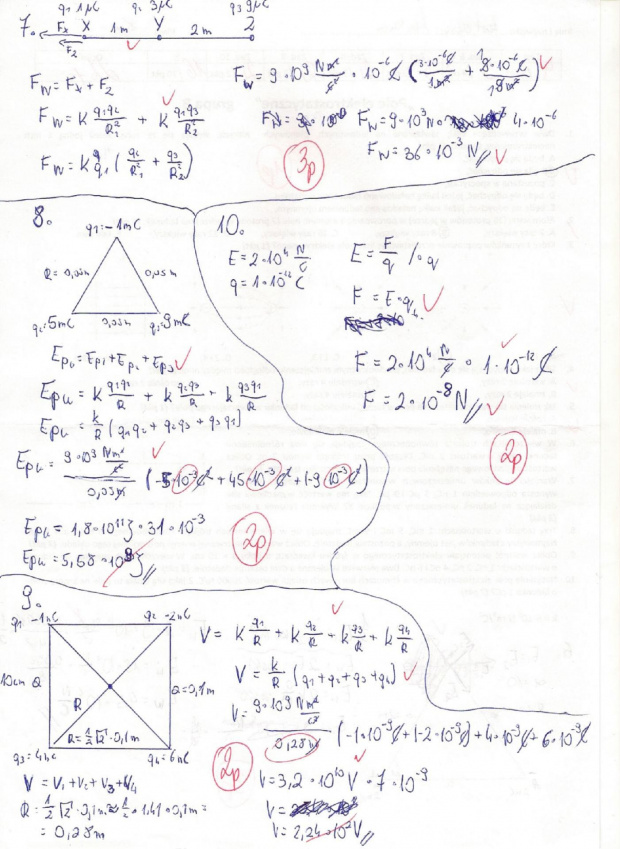 7.
q₁ 1μC q₂ 3μC q₃ 9μC
Fx X 1m Y 2m Z
F₂
Fw = Fx + F₂
Fw = K q₁q₂/R₁² + K q₁q₃/R₂²
Fw = K q₁ (q₂/R₁² + q₃/R₂²)
Fw = 9·10⁹ Nm²/C² · 10⁻⁶ C (3·10⁻⁶C/1m² + 9·10⁻⁶C/9m²)
Fw = 9·10³ N · 4·10⁻⁶
Fw = 36·10⁻³ N
3p
8.
q₁ = -1mC
R = 0,05m 0,05m
q₂ = 5mC 0,05m q₃ = 9mC
Epu = Ep₁ + Ep₂ + Ep₃
Epu = k q₁q₂/R + k q₂q₃/R + k q₃q₁/R
Epu = k/R (q₁q₂ + q₂q₃ + q₃q₁)
Epu = 9·10⁹ Nm²/C² / 0,05m (-5·10⁻³C² + 45·10⁻³C² + (-9·10⁻³C²)
Epu = 1,8·10¹¹ J · 31·10⁻³
Epu = 5,58·10⁹ J
2p
10.
E = 2·10⁴ N/C
q = 1·10⁻¹² C
E = F/q /·q
F = E·q
F = 2·10⁴ N/C · 1·10⁻¹² C
F = 2·10⁻⁸ N
2p
9.
q₁ -1nC q₂ -2nC
10cm a a=0,1m
R
R = ½√2·0,1m
q₃ = 4nC q₄ = 6nC
V = V₁ + V₂ + V₃ + V₄
R = ½√2·0,1m ≈ ½·1,41·0,1m =
= 0,28m
V = K q₁/R + K q₂/R + K q₃/R + K q₄/R
V = K/R (q₁ + q₂ + q₃ + q₄)
V = 9·10⁹ Nm²/C² / 0,28m (-1·10⁻⁹C + (-2·10⁻⁹C) + 4·10⁻⁹C + 6·10⁻⁹C
V = 3,2·10¹⁰ V · 7·10⁻⁹
V =
V = 2,24·10² V
2p